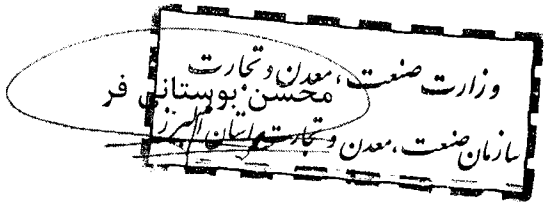 وزارت صنعت، معدن و تجارت
محسن بوستانی فر
سازمان صنعت، معدن و تجارت استان البرز